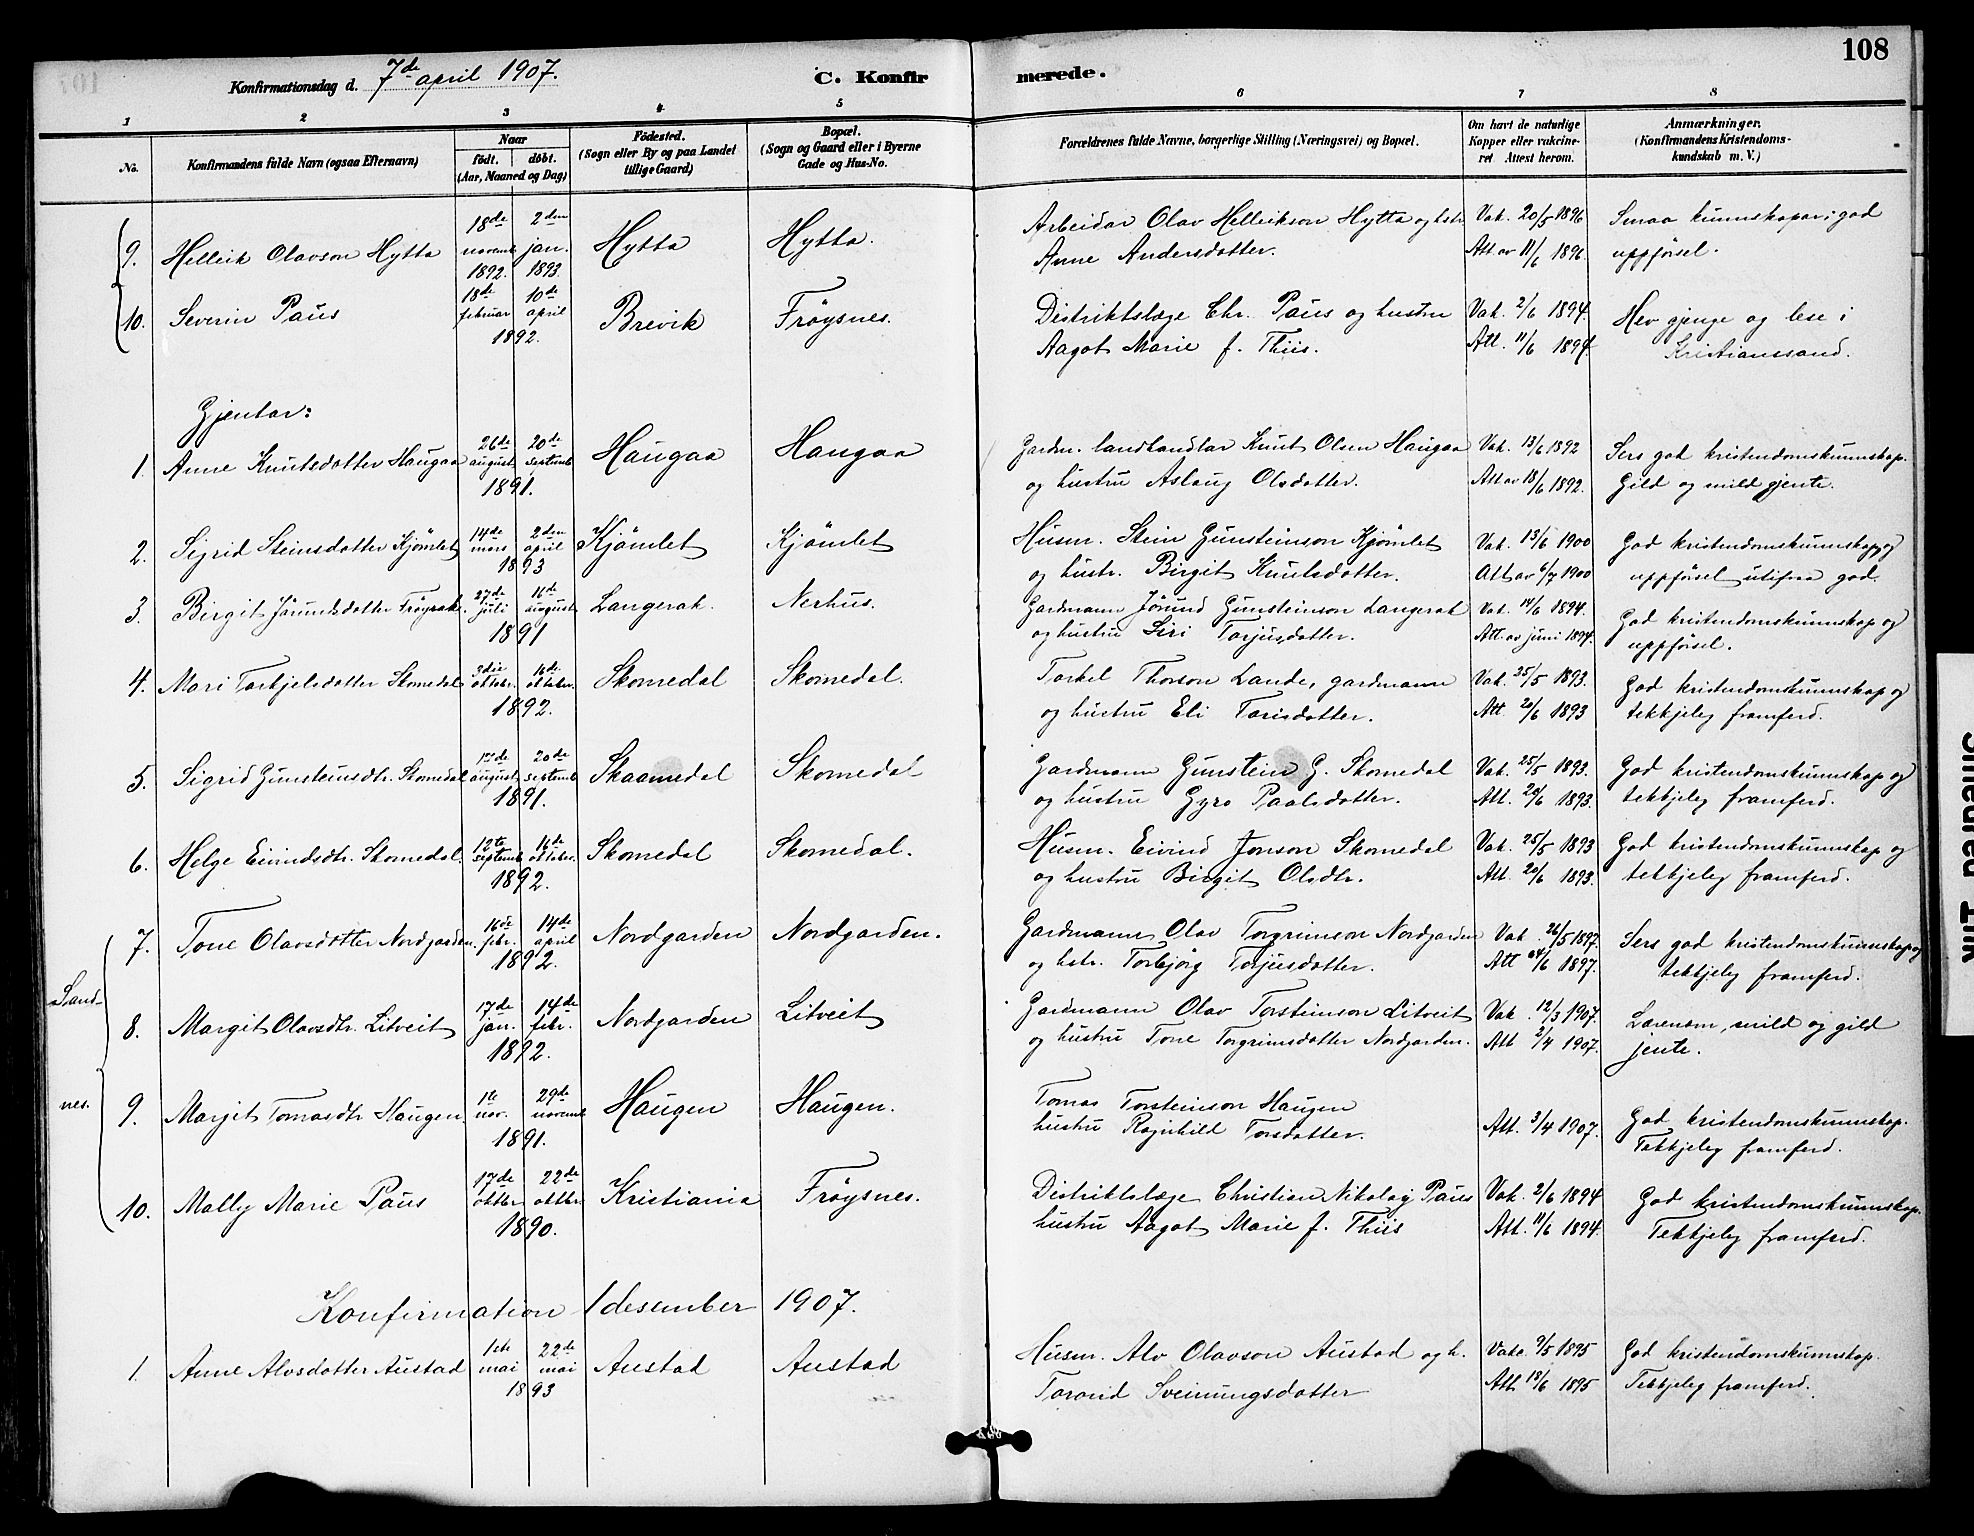 108
Konfirmationsdag d. 7de april 1907.
C. Konfirmerede.
1 2 3 4 5 6 7 8
No.
Konfirmandens fulde Navn (ogsaa Efternavn)
Naar
födt. döbt.
(Aar, Maaned og Dag)
Födested.
(Sogn eller By og paa Landet
tillige Gaard)
Bopæl.
(Sogn og Gaard eller i Byerne
Gade og Hus-No.
Forældrenes fulde Navne, borgerlige Stilling (Næringsvei) og Bopæl.
Om havt de naturlige
Kopper eller vakcine-
ret. Attest herom.
Anmærkninger.
(Konfirmandens Kristendoms-
kundskab m. V.)
9. Helleik Olavson Hytta 18de novemb. 1892. 2den jan. 1893. Hytta Hytta. Arbeidar Olav Hellikson Hytta og hstr. Vak. 20/5 1896 Smaa kunnskapar; god
Anne Andersdotter. Att av 11/6 1896. uppförsel.
10. Severin Paus 18de februar 10de april 1892. Brevik Fröysnes. Distriktslæge Chr. Paus og hustru Vak. 2/6 1894. Hev gjenge og lese i
Aagot Marie f. Thiis. Att. 11/6 1894. Kristianssand.
Gjentar:
1. Anne Knutsdotter Haugaa 26de august 20de septemb. 1891. Haugaa Haugaa Gardm. landhandlar Knut Olsen Haugaa Vak. 13/6 1892 Sers god kristendomskunnskap.
og hustru Aslaug Olsdotter. Att av 18/6 1892. Gild og mild gjente.
2. Sigrid Steinsdotter Kjömlet 14de mars 2den april 1893 Kjömlet Kjömlet Husm. Stein Gunsteinson Kjömlet Vak. 13/6 1900 God kristendomskunnskap og
og hustr. Birgit Knutsdotter. Att av 6/7 1900 uppförsel utifra god.
3. Birgit Jörundsdotter Fröyrak. 27de juli 16de august 1891 Langerak. Nerhus. Gardmann Jörund Gunsteinson Langerak Vak. 14/6 1894. God kristendomskunnskap og
og hustru Siri Torjusdotter. Att. av juni 1894. uppförsel.
4. Mari Torkjelsdotter Skomedal 3die oktobr. 16de oktober. 1892. Skomedal Skomedal. Torkel Thorson Lande, gardmann Vak. 25/5 1893. God kristendomskunnskap og
og hustru Eli Torisdotter. Att. 20/6 1893 tekkjeleg framferd.
5. Sigrid Gunsteinsdtr. Skomedal august 20de septemb. 1891. Skaamedal Skomedal Gardmann Gunstein G. Skomedal Vak. 25/5 1893. God kristendomskunnskap og
og hustru Gyro Paalsdotter. Att. 20/6 1893. tekkjeleg framferd.
6. Helge Eivindsdtr. Skomedal. 12te septemb. 16de oktober. 1892. Skomedal Skomedal. Husm. Eivind Jonson Skomedal Vak. 25/5 1893 God kristendomskunnskap og
og hustru Birgit Olsdtr. Att. 20/6 1893. tekkjeleg framferd.
7. Tone Olavsdotter Nordgarden. 16de febr. 14de april 1892. Nordgarden Nordgarden. Gardmann Olav Torgrimson Nordgarden Vak. 26/5 1897. Sers god kristendomskunnskap og
og hstr. Torbjörg Torjusdotter. Att 24/6 1897. tekkjeleg framferd.
Sand-
8. Margit Olavsdtr. Litveit 17de jan. 14de febr. 1892. Nordgarden Litveit Gardmann Olav Torsteinson Litveit Vak. 12/3 1907. Lærensam, mild og gild
og hustru Tone Torgrimsdotter Nordgarden. Att 2/4 1907. jente.
nes.
9. Margit Tomasdtr. Haugen. 1te nov. 29de novemb. 1891. Haugen Haugen. Tomas Torsteinson Haugen
hustru Ragnhild Torsdotter. Att. 3/4 1907. God kristendomskunnskap.
Tekkjeleg framferd.
10. Mally Marie Paus 17de oktbr. 22de oktbr. 1890. Kristiania Fröysnes. Distriktslæge Christian Nikolaj Paus Vak. 2/6 1894 God kristendomskunnskap.
hustru Aagot Marie f. Thiis Att. 11/6 1894. Tekkjeleg framferd.
Konfirmation 1 desember 1907.
1. Anne Alvsdotter Austad 1ste mai 22de mai 1893 Austad Austad Husm. Alv Olavson Austad og h. Vakc. 9/5 1895 God kristendomskunnskap.
Torond Sveinungsdotter Att 18/6 1895 Tekkjeleg framferd.